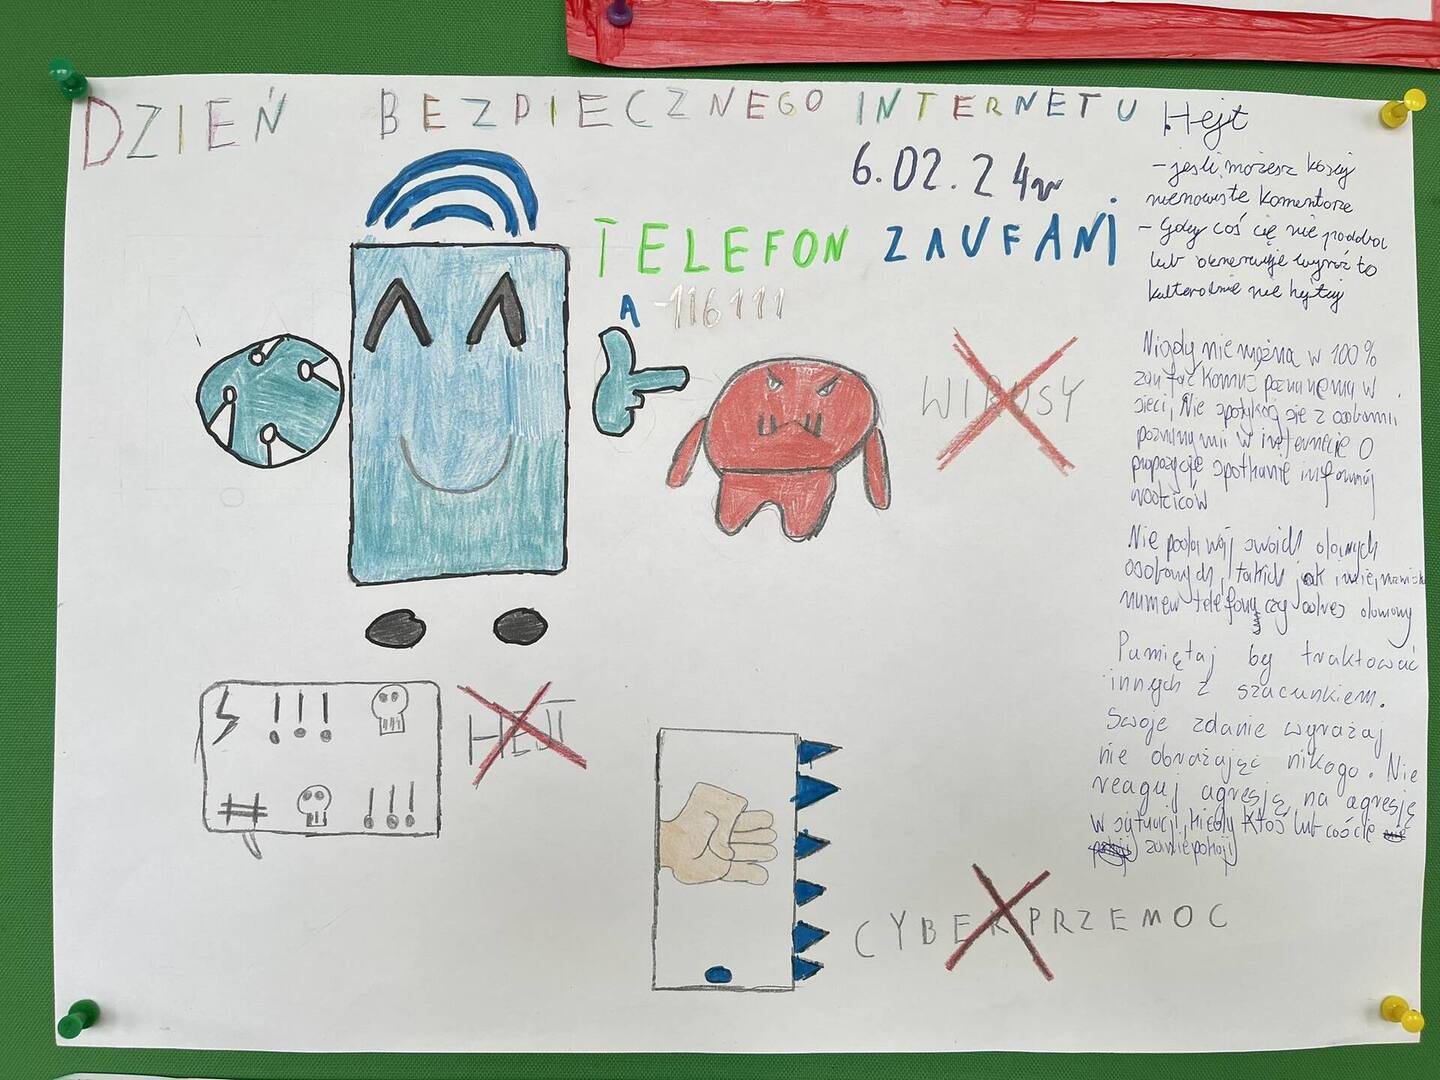 DZIEŃ BEZPIECZNEGO INTERNETU
6.02.24r
TELEFON ZAUFANI
A -116111
WIRUSY
HEJT
CYBERPRZEMOC
Hejt
- jeśli możesz
komentarze
- Gdy coś cię nie
lub wyraź to
nie hejtuj
Nigdy nie można w 100%
zaufać komuś w
sieci, Nie spotykaj się z osobami
poznanymi w internecie O
propozycję spotkanie informuj
Nie podawaj swoich danych
osobowych, takich jak imie,
numeru telefonu czy adres domowy
Pamiętaj by traktować
innych z szacunkiem.
Swoje zdanie wyrażaj
nie obrażając nikogo. Nie
reaguj agresją na agresję
w sytuacji, kiedy ktoś lub coś cię
zaniepokoji